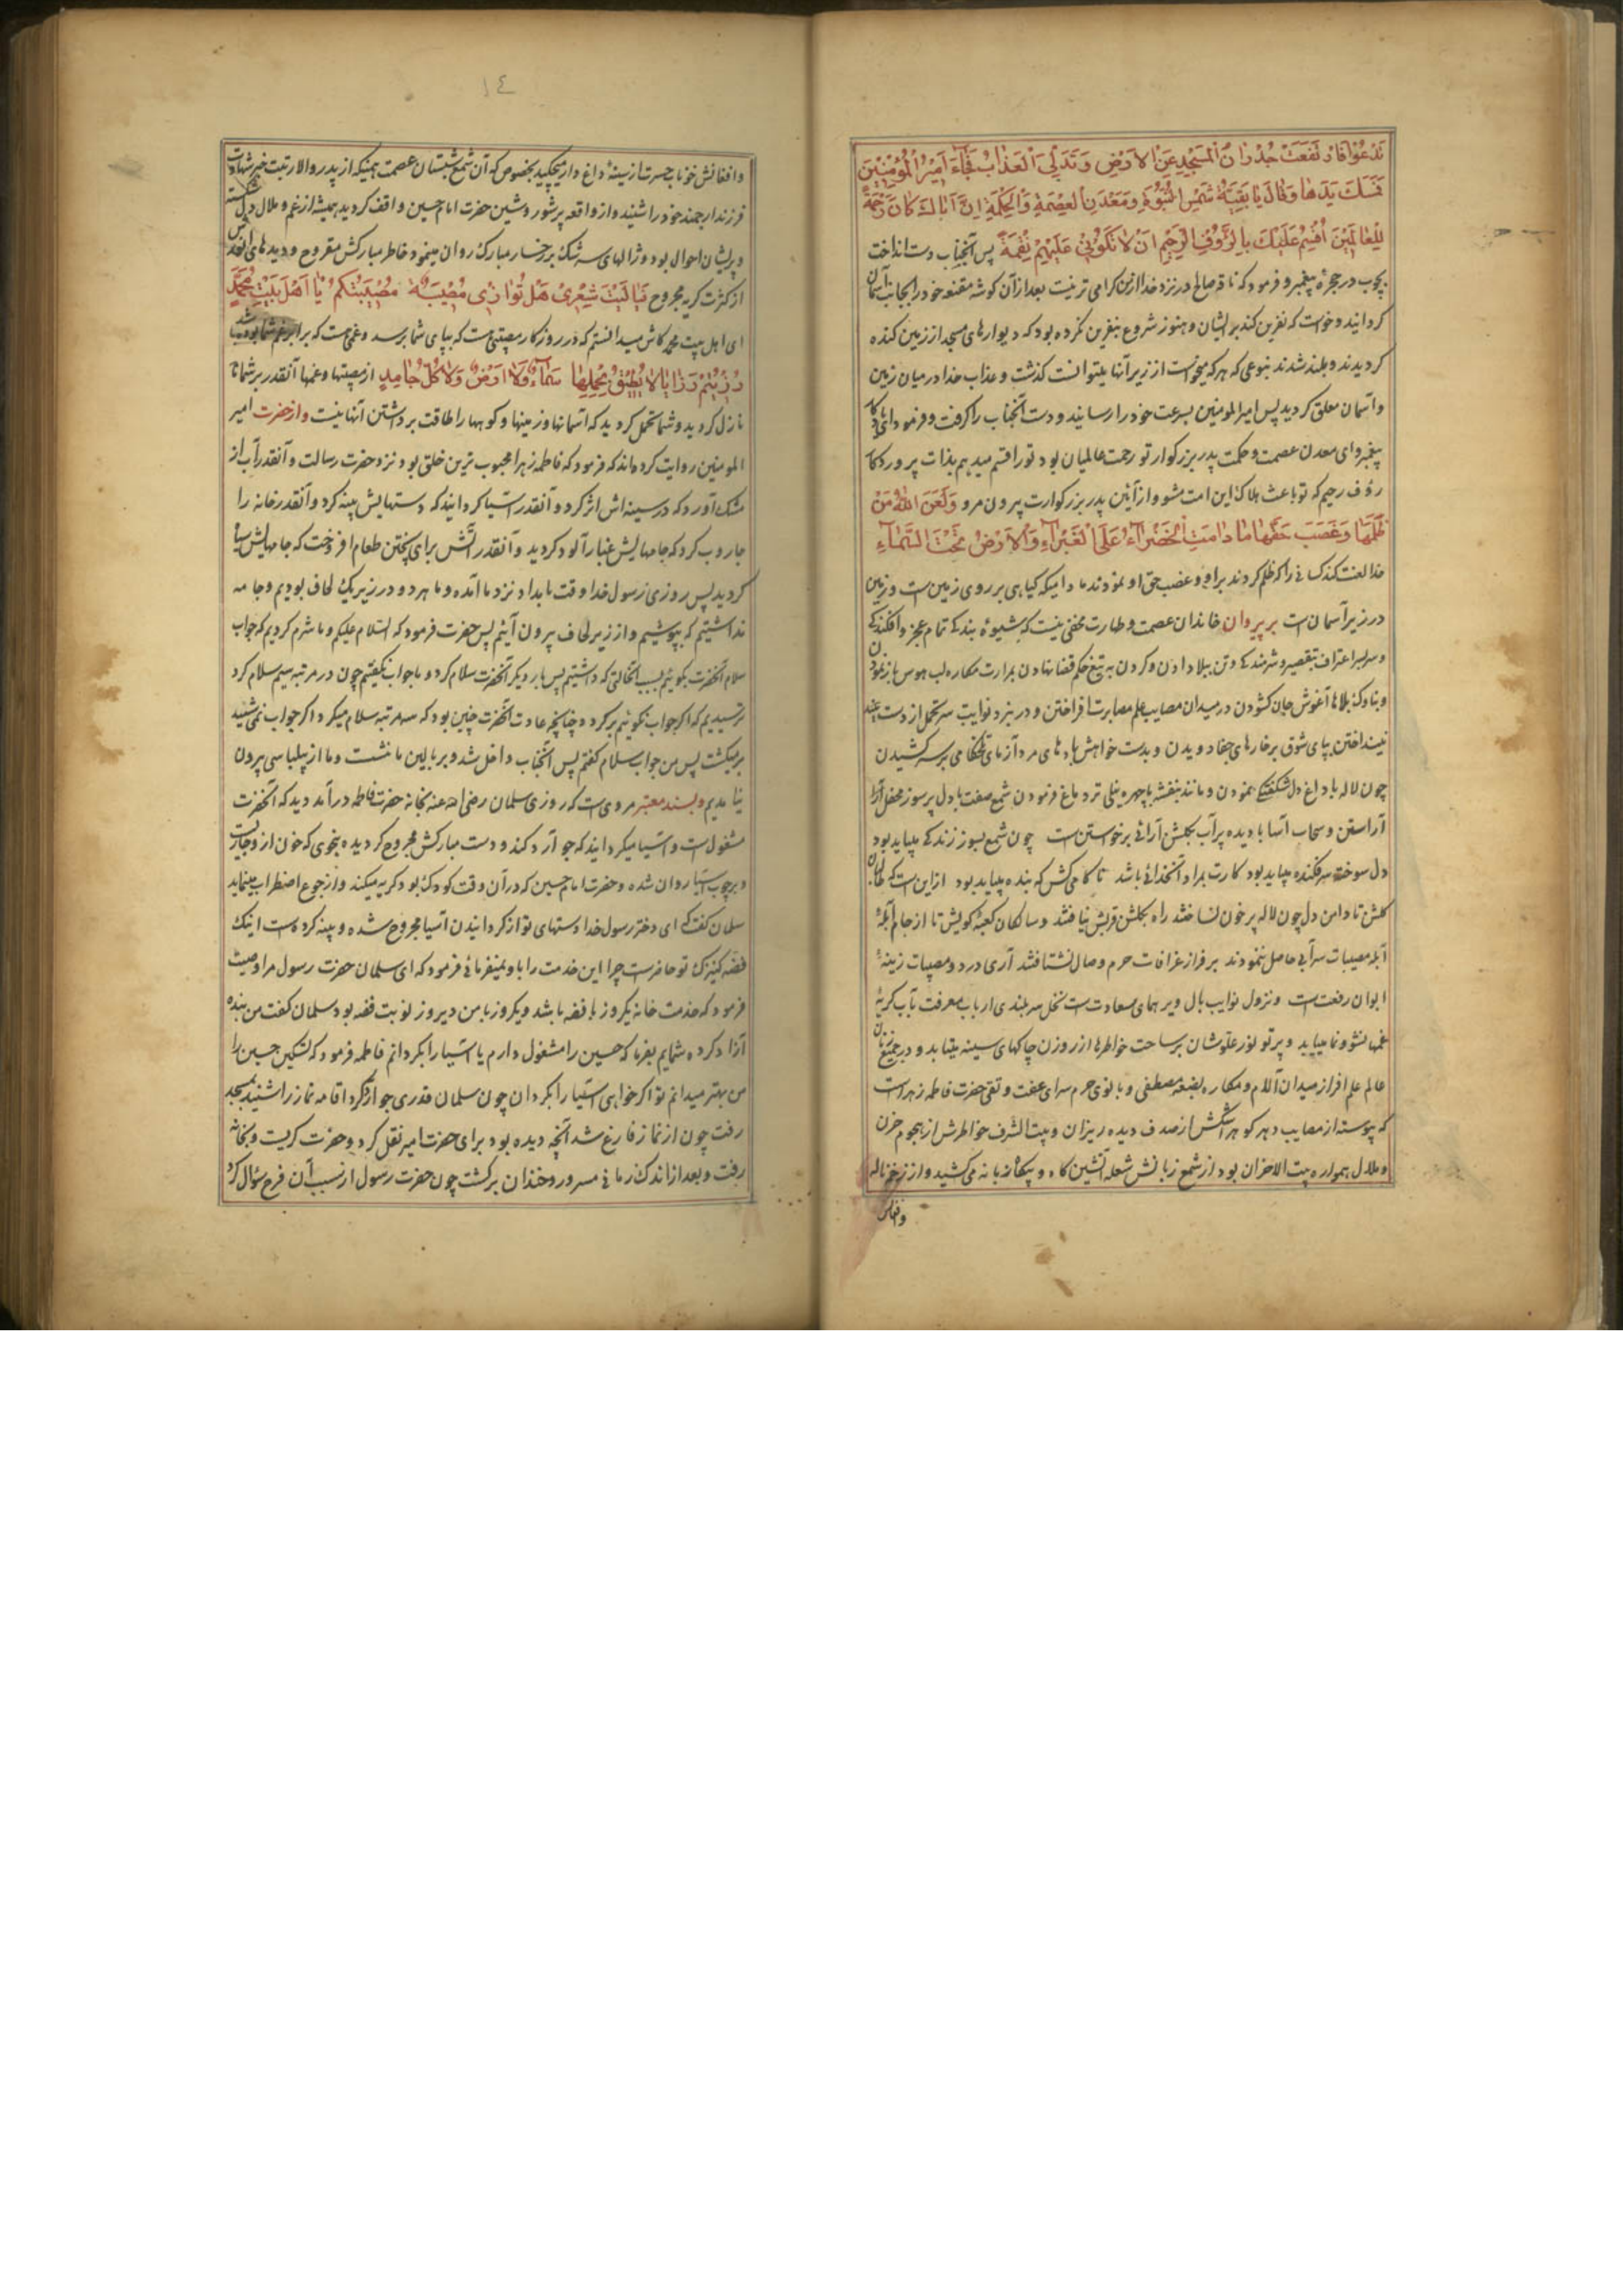 تدعوا فارتفعت جدران المسجد عن الارض وتدلی العذاب فجاء امیرالمؤمنین
فمسک یدها وقال یا بقیة شمس النبوة ومعدن العصمة والحکمة ان اباک کان رحمة
للعالمین اقسم علیک بالرؤف الرحیم ان لا تکونی علیهم نقمة پس آنجناب دست انداخت
بچوب در حجرهٔ پیغمبر و فرمود که ناقه صالح در نزد خدا از من کرامی تر نیست بعد از آن کوشه مقنعه خود را بجانب آسمان
کردانید و خواست که نفرین کند بر ایشان و هنوز شروع بنفرین نکرده بود که دیوارهای مسجد از زمین کنده
کردیدند و بلند شدند بنوعی که هر که میخواست از زیر آنها میتوانست کذشت و عذاب خدا در میان زمین
و آسمان معلق کردید پس امیرالمومنین بسرعت خود را رسانید و دست آنجناب را کرفت و فرمود ای یادکار
پیغمبر و ای معدن عصمت و حکمت پدر بزرکوار تو رحمت عالمیان بود تو را قسم میدهم بذات پروردکار
رؤف رحیم که تو باعث هلاک این امت مشو و از آئین پدر بزرکوارت بیرون مرو ولعن الله من
ظلمها وغصب حقها ما دامت الخضراء علی الغبراء والارض تحت السماء
خدا لعنت کند کسانی را که ظلم کردند براو و غصب حق او نمودند مادامیکه کیاهی بر روی زمین است و زمین
در زیر آسمان است بر پیروان خاندان عصمت و طهارت مخفی نیست که شیوهٔ بندکی تمام عجز و افکندکی
و سربسر اعتراف بتقصیر و شرمندکی و تن ببلا دادن و کردن به تیغ حکم قضا نهادن بمرارت مکاره لب هوس باز نمودن
و بناوک بلاها آغوش جان کشودن در میدان مصایب علم مصابرت افراختن و در نبرد نوایب سپر تحمل از دست
نینداختن بپای شوق بر خارهای جفا دویدن و بدست خواهش بادهای مرد آزمای تلخکامی بر سر کشیدن
چون لاله با داغ دل شکفتکی نمودن و مانند بنفشه با چهره نیلی تر دماغ فرمودن شمع صفت با دل پر سوز محفل آرا
آراستن و سحاب آسا با دیده پر آب بکلشن آرائی برخواستن است چون شمع بسوز زندکی میباید بود
دل سوخته سرفکنده میباید بود کارت بمراد آنخدائی باشد ناکامی کش که بنده میباید بود از این است که طالبان
کلش تا دامن دل چون لاله پر خون نساختند راه بکلشن قربش نیافتند و سالکان کعبهٔ کویش تا از جام آبلهٔ
آبله مصیبات سرآبی حاصل ننمودند بر فراز عرفات حرم وصال نشتافتند آری درد و مصیبات زینهٔ
ایوان رفعت است و نزول نوایب بال و پر همای سعادت است نخل سربلندی ارباب معرفت بآب کریهٔ
غمها نشو و نما مییابد و پرتو نور علو شان بر ساحت خواطرها از روزن چاکهای سینه میتابد و در جمیع زنان
عالم علم افراز میدان آلام و مکاره بضعهٔ مصطفی و بانوی حرم سرای عفت و تقی حضرت فاطمه زهراست
که پیوسته از مصایب دهر کوهر اشکش از صدف دیده ریزان و بیت الشرف خواطرش از هجوم حزن
و ملال همواره بیت الاحزان بود از شمع زبانش شعله آتشین کاه و بیکاه زبانه می کشید و از زخم ناله
وافغانش
١٤
وافغانش خوناب حسرت از سینهٔ داغ دار میچکید بخصوص که آن شمع شبستان عصمت همینکه از پدر والا رتبت خبر شهادت
فرزند ارجمند خود را شنید و از واقعه پر شور و شین حضرت امام حسین واقف کردید همیشه از غم و ملال دل شکسته
و پریشان احوال بود و ژالهای سرشک بر رخسار مبارک روان مینمود و خاطر مبارکش مقروح و دیدهای انورش
از کثرت کریه مجروح فیا لیت شعری هل توازی مصیبة مصیبتکم یا اهل بیت محمد
ای اهل بیت محمد کاش میدانستم که در روزکار مصیبتی هست که بپای شما برسد و غمی هست که برابر غم شما بوده باشد
رزیتم رزایا لا یطیق بحملها سماء ولا ارض ولا کل جامد از مصیبتها و غمها آنقدر بر شماها
نازل کردید و شما تحمل کردید که آسمانها و زمینها و کوهها را طاقت برداشتن آنها نیست و از حضرت امیر
المومنین روایت کرده‌اند که فرمود که فاطمه زهرا محبوب ترین خلق بود نزد حضرت رسالت و آنقدر آب از
مشک آورد که در سینه‌اش اثر کرد و آنقدر آسیا کردانید که دستهایش پینه کرد و آنقدر خانه را
جاروب کرد که جامهایش غبار آلود کردید و آنقدر آتش برای پختن طعام افروخت که جامهایش سیاه
کردید پس روزی رسول خدا وقت بامداد نزد ما آمد و ما هر دو در زیر یک لحاف بودیم و جامه
نداشتیم که بپوشیم و از زیر لحاف بیرون آئیم پس حضرت فرمود که السلام علیکم و ما شرم کردیم که جواب
سلام آنحضرت بکوئیم بسبب آنحالتی که داشتیم پس بار دیکر آنحضرت سلام کرد و ما جواب نکفتیم چون در مرتبه سیم سلام کرد
ترسیدیم که اکر جواب نکوئیم برکردد چنانچه عادت آنحضرت چنین بود که سه مرتبه سلام میکرد اکر جواب نمی شنید
برمیکشت پس من جواب سلام کفتم پس آنجناب داخل شد و بر بالین ما نشست و ما از بیلباسی بیرون
نیامدیم و بسند معتبر مروی است که روزی سلمان رضی الله عنه بخانه حضرت فاطمه درآمد دید که آنحضرت
مشغول است و آسیا میکرداند که جو آرد کند و دست مبارکش مجروح کردیده بنحوی که خون از او جاریست
و بر چوب آسیا روان شده و حضرت امام حسین که در آن وقت کودک بود کریه میکند و از جوع اضطراب مینماید
سلمان کفت که ای دختر رسول خدا دستهای تو از کردانیدن آسیا مجروح شده و پینه کرده است اینک
فضه کنیزک تو حاضر است چرا این خدمت را باو نمیفرمائی فرمود که ای سلمان حضرت رسول مرا وصیت
فرمود که خدمت خانه یکروز با فضه باشد و یکروز با من دیروز نوبت فضه بود سلمان کفت من بنده
آزاد کرده شمایم بفرما که حسین را مشغول دارم یا آسیا را بکردانم فاطمه فرمود که تسکین حسین را
من بهتر میدانم تو اکر خواهی آسیا را بکردان چون سلمان قدری جو آرد کرد اقامه نماز را شنید بمسجد
رفت چون از نماز فارغ شد آنچه دیده بود برای حضرت امیر نقل کرد و حضرت کریست و بخانه
رفت و بعد از اندک زمانی مسرور و خندان برکشت چون حضرت رسول از سبب آن فرح سؤال کرد